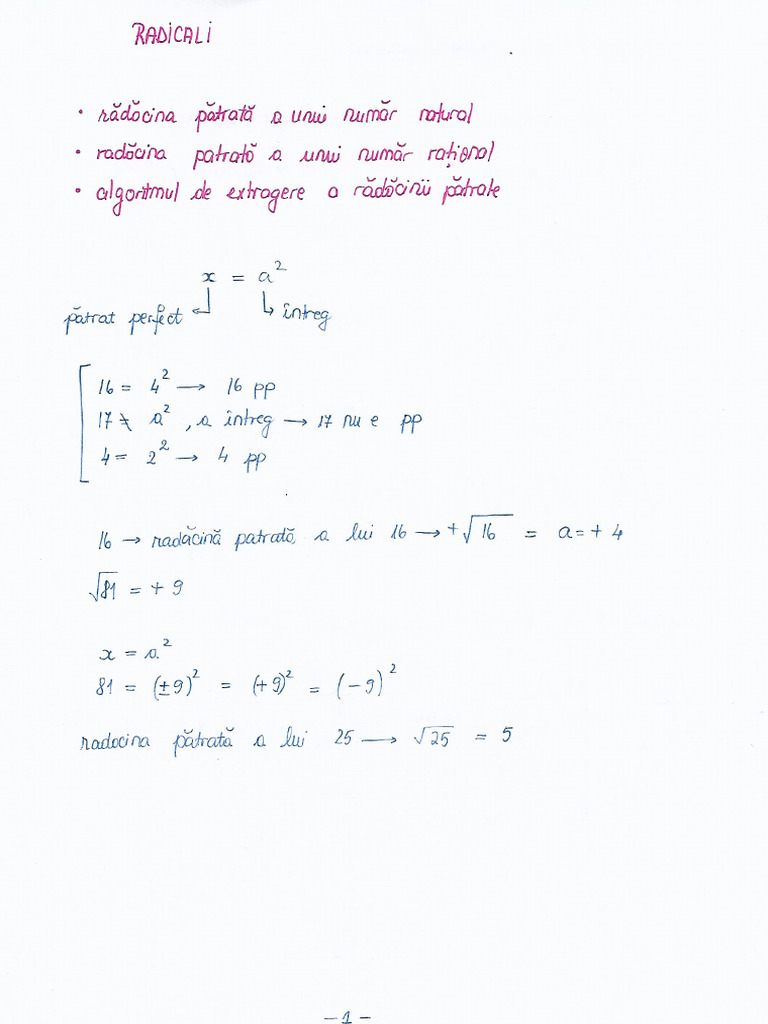 RADICALI
• rădăcina pătrată a unui număr natural
• radăcina patrată a unui număr rațional
• algoritmul de extragere a rădăcinii pătrate
x = a²
pătrat perfect ↲ ↳ întreg
16 = 4² → 16 pp
17 ≠ a² , a întreg → 17 nu e pp
4 = 2² → 4 pp
16 → radăcină patrată a lui 16 → +√16 = a = + 4
√81 = + 9
x = a²
81 = (±9)² = (+9)² = (-9)²
radacina pătrată a lui 25 → √25 = 5
- 1 -